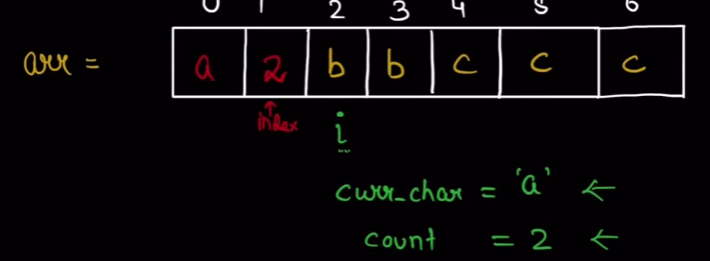 0 1 2 3 4 5 6
arr = a 2 b b c c c
index i
curr_char = 'a' ←
count = 2 ←